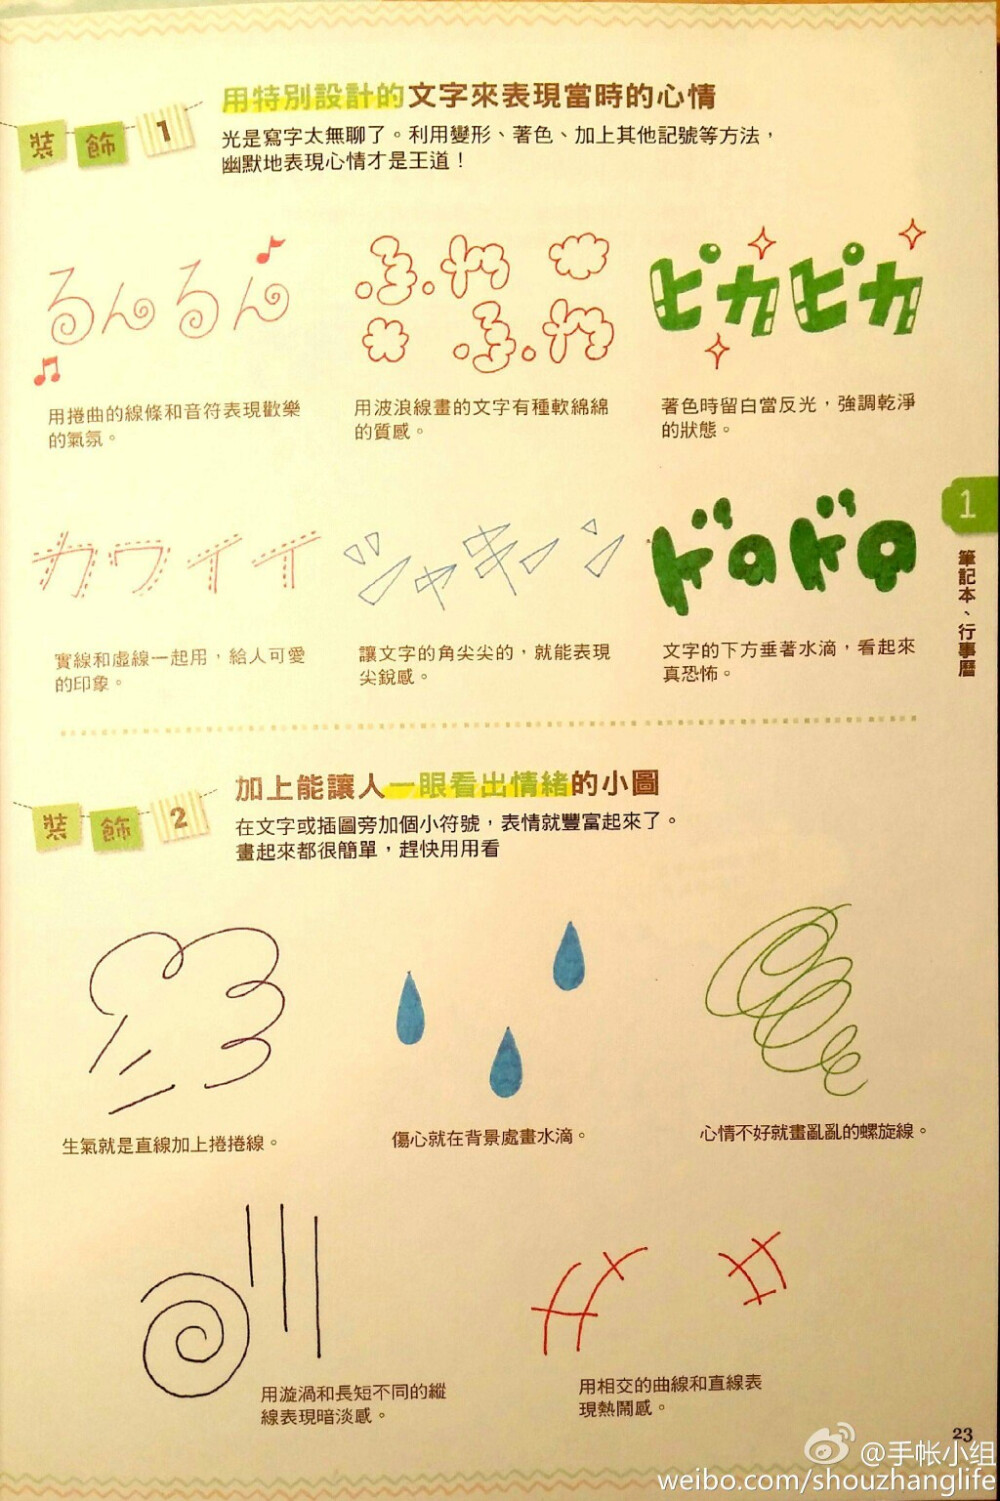 裝飾1
用特別設計的文字來表現當時的心情
光是寫字太無聊了。利用變形、著色、加上其他記號等方法，
幽默地表現心情才是王道！
るんるん
ふわ
ふわ
ピカピカ
用捲曲的線條和音符表現歡樂
的氣氛。
用波浪線畫的文字有種軟綿綿
的質感。
著色時留白當反光，強調乾淨
的狀態。
カワイイ
ジャキーン
ドロドロ
實線和虛線一起用，給人可愛
的印象。
讓文字的角尖尖的，就能表現
尖銳感。
文字的下方垂著水滴，看起來
真恐怖。
1
筆記本、行事曆
裝飾2
加上能讓人一眼看出情緒的小圖
在文字或插圖旁加個小符號，表情就豐富起來了。
畫起來都很簡單，趕快用用看
生氣就是直線加上捲捲線。
傷心就在背景處畫水滴。
心情不好就畫亂亂的螺旋線。
用漩渦和長短不同的縱
線表現暗淡感。
用相交的曲線和直線表
現熱鬧感。
23
@手帐小组
weibo.com/shouzhanglife